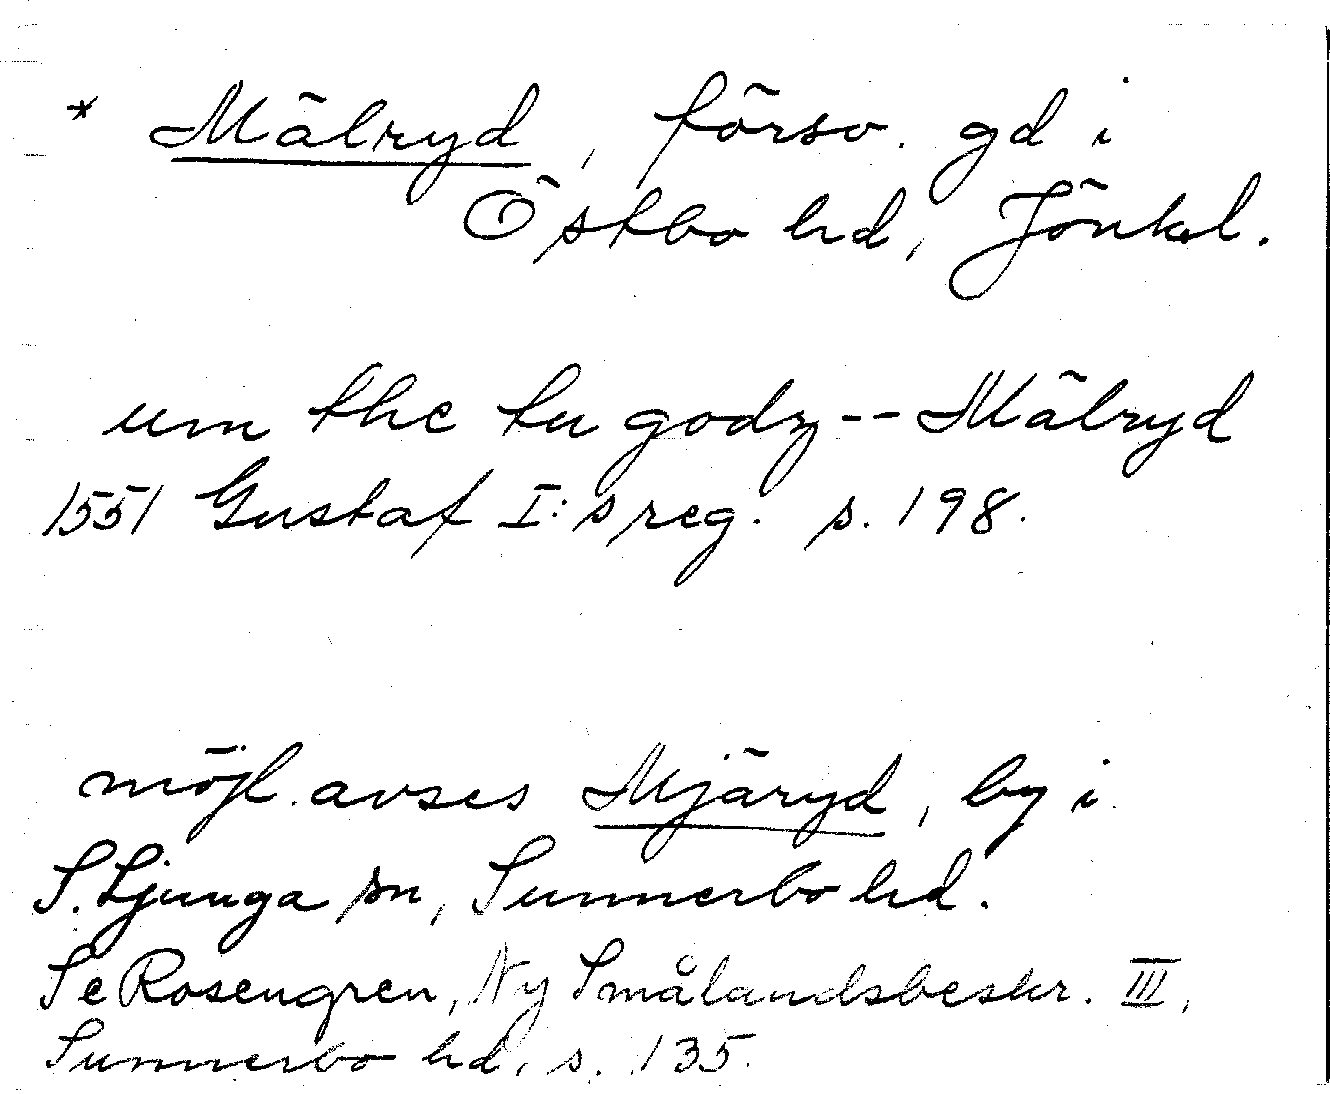 * Mälryd, försv. gd i
Östbo hd, Jönk.l.
um the tu godz -- Mälryd
1551 Gustaf I:s reg. s. 198.
möjl. avses Mjäryd, by i
S. Ljunga sn, Sunnerbo hd.
Se Rosengren, Ny Smålandsbeskr. III,
Sunnerbo hd, s. 135.